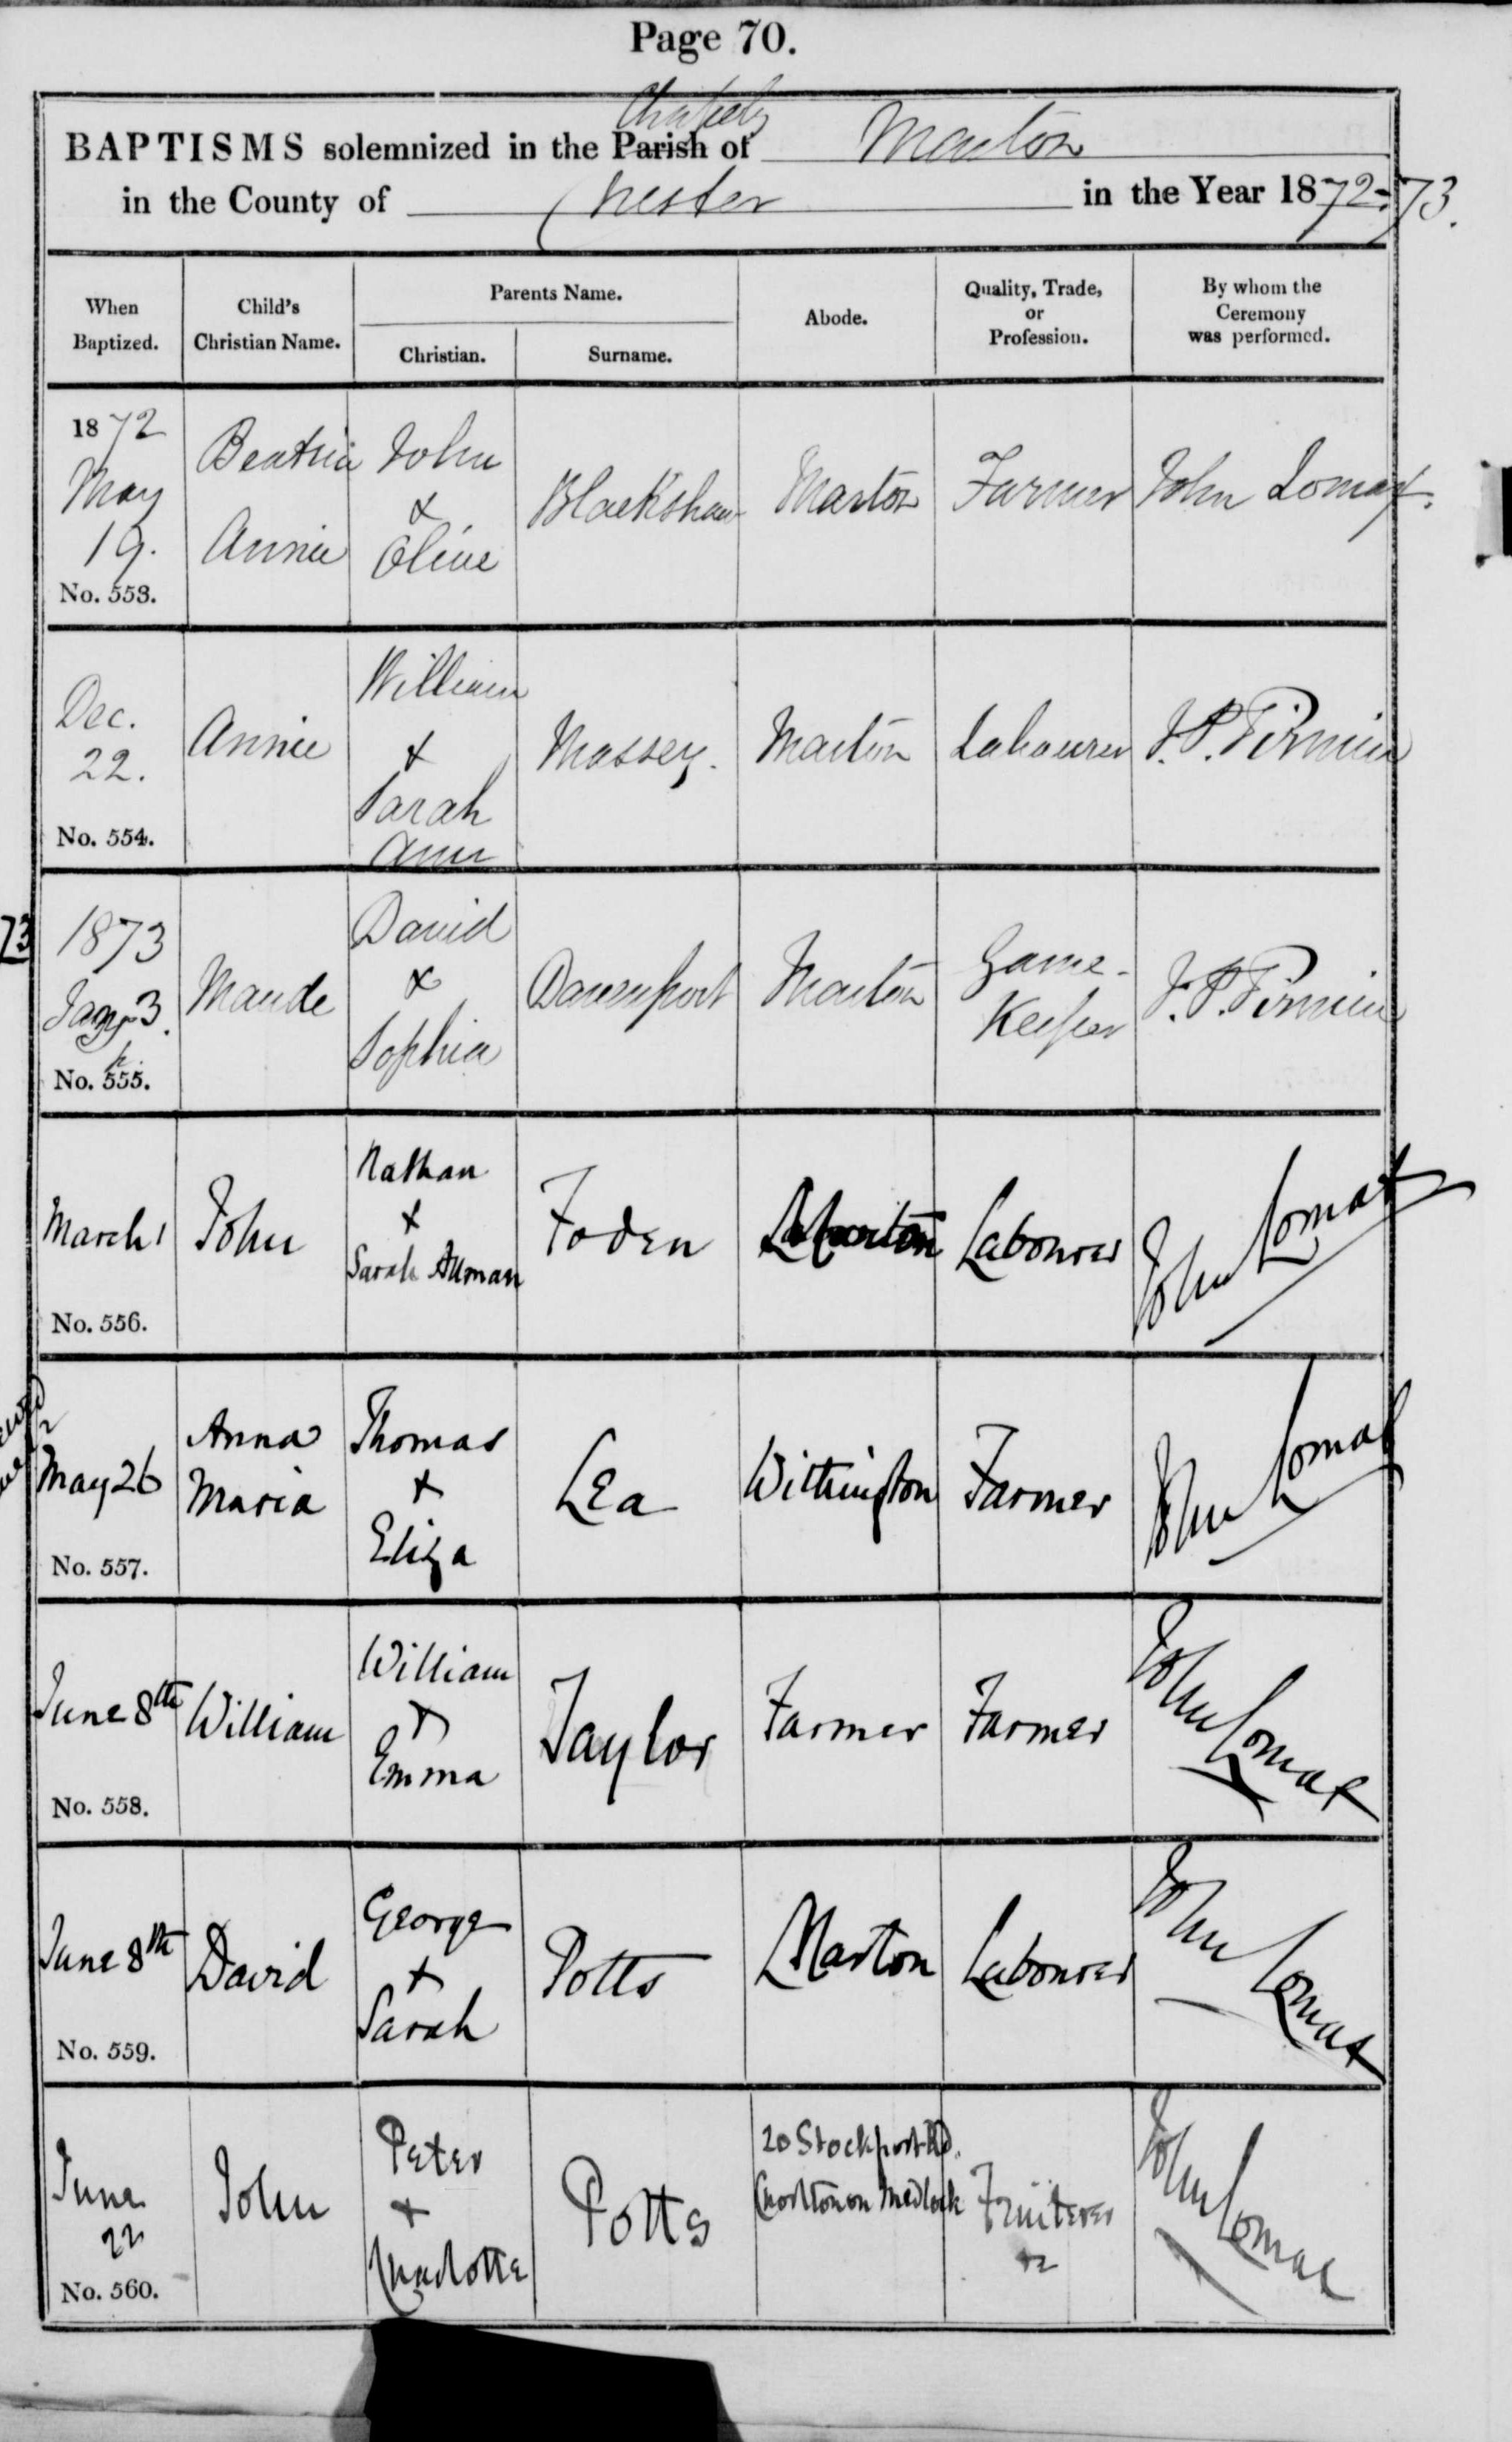 Page 70.
Chapelry
BAPTISMS solemnized in the Parish of Marton
in the County of Chester in the Year 1872-73.
When Baptized.
Child's Christian Name.
Parents Name.
Christian.
Surname.
Abode.
Quality, Trade, or Profession.
By whom the Ceremony was performed.
1872
May
19.
No. 553.
Beatrice
Annie
John
&
Olive
Blackshaw
Marton
Farmer
John Lomax.
Dec.
22.
No. 554.
Annie
William
&
Sarah
Ann
Massey.
Marton
Labourer
J. P. Firmin
73
1873
Jany 3.
No. 555.
Maude
David
&
Sophia
Davenport
Marton
Game-
Keeper
J. P. Firmin
March 1
No. 556.
John
Nathan
+
Sarah Allman
Foden
Marton
Labourer
John Lomax
May 26
No. 557.
Anna
Maria
Thomas
+
Eliza
Lea
Withington
Farmer
John Lomax
June 8th
No. 558.
William
William
+
Emma
Taylor
Farmer
Farmer
John Lomax
June 8th
No. 559.
David
George
+
Sarah
Potts
Marton
Labourer
John Lomax
June
22
No. 560.
John
Peter
+
Charlotte
Potts
20 Stockport Rd.
Chorlton on Medlock
Fruiterer
John Lomax